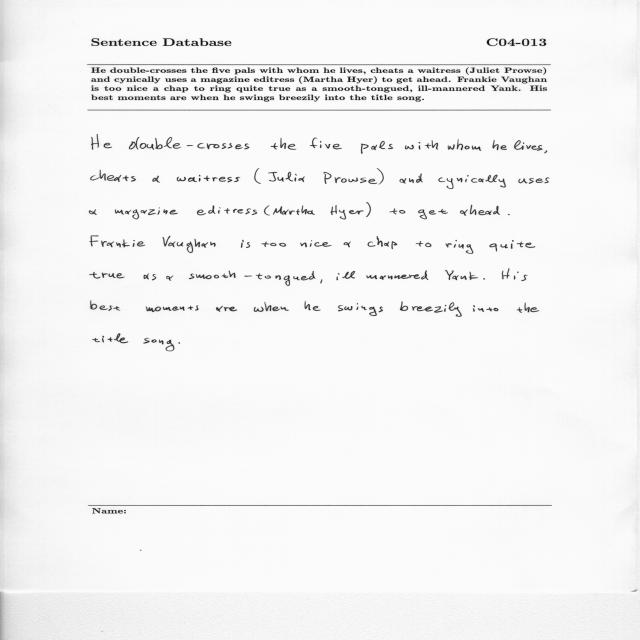 Sentence Database C04-013
He double-crosses the five pals with whom he lives, cheats a waitress (Juliet Prowse)
and cynically uses a magazine editress (Martha Hyer) to get ahead. Frankie Vaughan
is too nice a chap to ring quite true as a smooth-tongued, ill-mannered Yank. His
best moments are when he swings breezily into the title song.
He double-crosses the five pals with whom he lives,
cheats a waitress (Julia Prowse) and cynically uses
a magazine editress (Martha Hyer) to get ahead.
Frankie Vaughan is too nice a chap to ring quite
true as a smooth-tongued, ill mannered Yank. His
best moments are when he swings breezily into the
title song.
Name: